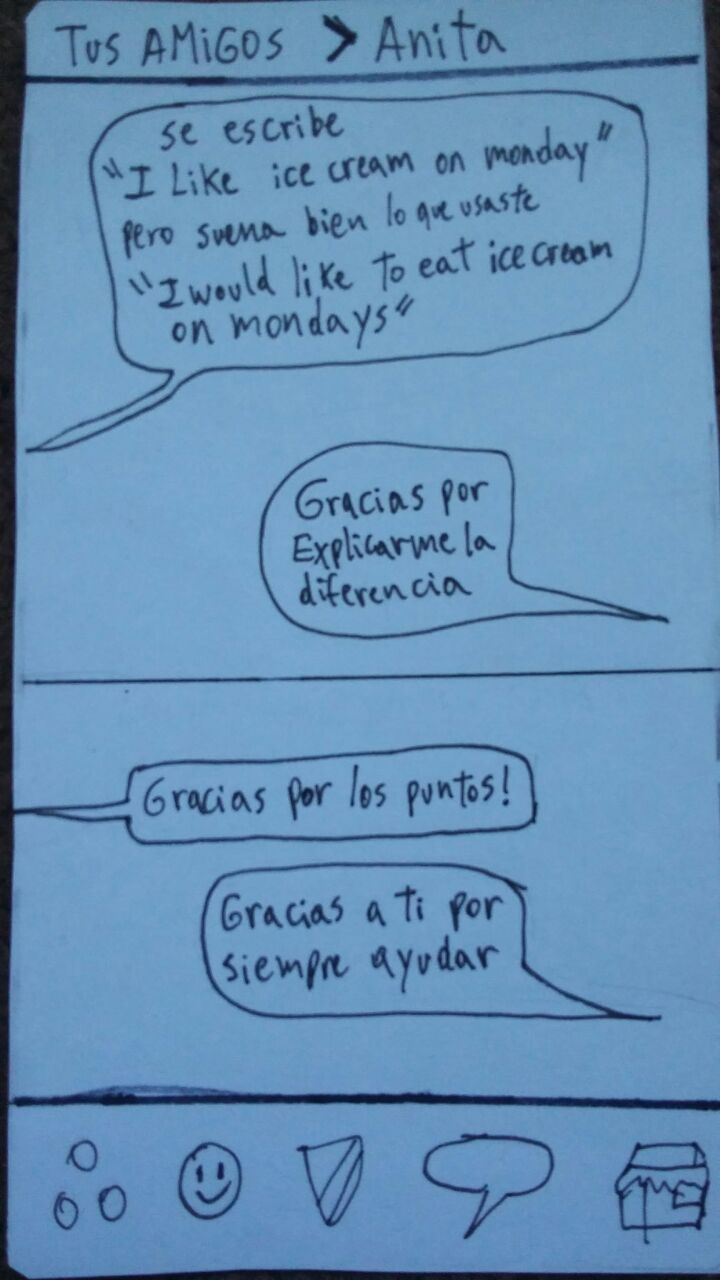 Tus AMiGOS > Anita
se escribe
"I Like ice cream on monday"
pero suena bien lo que usaste
"I would like to eat ice cream
on mondays"
Gracias por
Explicarme la
diferencia
Gracias por los puntos!
Gracias a ti por
siempre ayudar